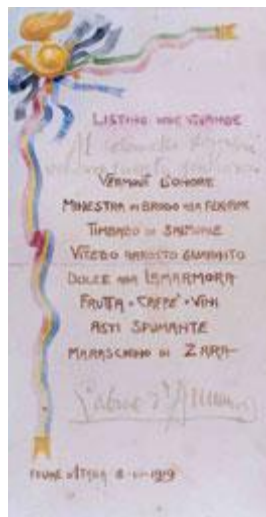 LISTINO DELLE VIVANDE
Al colonnello
VERMOUT D'ONORE
MINESTRA IN BRODO
TIMBALO DI SALMONE
VITELLO ARROSTO GUARNITO
DOLCE ALLA LAMARMORA
FRUTTA - CAFFE' - VINI
ASTI SPUMANTE
MARASCHINO DI ZARA
Gabriele d'Annunzio
FIUME D'ITALIA 8 1919